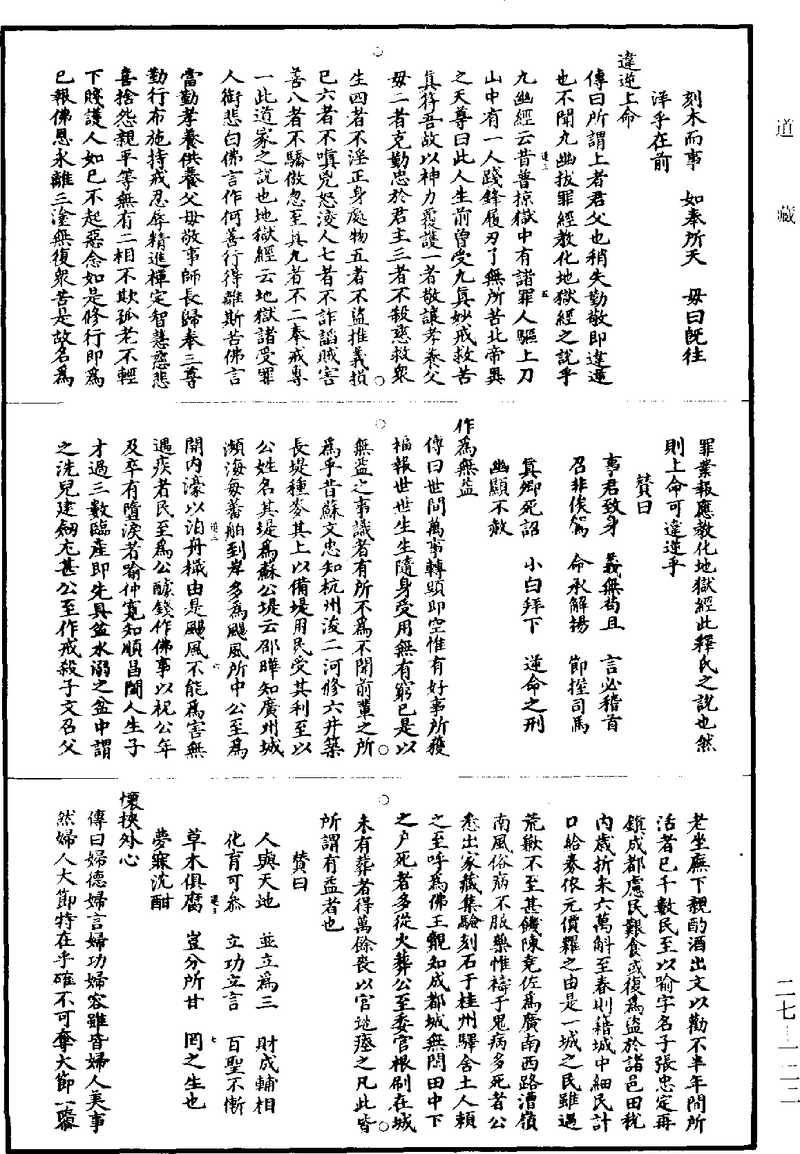 道藏
刻木而事　如奉所天　毋曰既往
洋乎在前
違逆上命
傳曰所謂上者君父也稍失勤敬即違逆
也不聞九幽拔罪經教化地獄經之說乎
九幽經云昔普掠獄中有諸罪人驅上刀
山中有一人踐鋒履刃了無所苦北帝異
之天尊曰此人生前曾受九真妙戒救苦
真符吾故以神力覆護一者敬讓孝養父
母二者克勤忠於君主三者不殺慈救衆
生四者不淫正身處物五者不盜推義損
已六者不嗔兇怒淩人七者不詐諂賊害
善八者不驕傲忽至真九者不二奉戒專
一此道家之說也地獄經云地獄諸受罪
人銜悲白佛言作何善行得離斯苦佛言
當勤孝養供養父母敬事師長歸奉三尊
勤行布施持戒忍辱精進禪定智慧慈悲
喜捨怨親平等無有二相不欺孤老不輕
下賤護人如已不起惡念如是修行即為
已報佛恩永離三塗無復衆苦是故名為
罪業報應教化地獄經此釋氏之說也然
則上命可違逆乎
贊曰
事君致身　義無苟且　言必稽首
召非俟駕　命承解揚　節握司馬
真卿死詔　小白拜下　逆命之刑
幽顯不赦
作為無益
傳曰世間萬事轉頭即空惟有好事所獲
福報世世生生隨身受用無有窮已是以
無益之事識者有所不為不聞前輩之所
為乎昔蘇文忠知杭州浚二河修六井築
長堤種麥其上以備堤用民受其利至以
公姓名其堤為蘇公堤云邵曄知廣州城
瀕海每蕃舶到岸多為颶風所中公至為
開內濠以泊舟檝由是颶風不能為害無
遇疾者民至為公醵錢作佛事以祝公年
及卒有墮淚者喻仲寬知順昌閩人生子
才過三數臨產即先具盆水溺之盆中謂
之洗兒建劒尤甚公至作戒殺子文召父
老坐廡下親酌酒出文以勸不半年間所
活者已千數民至以喻字名子張忠定再
鎮成都慮民艱食或復為盜於諸邑田稅
內歲折米六萬斛至春則籍城中細民計
口給券依元價糶之由是一城之民雖遇
荒歉不至甚饑陳堯佐為廣南西路漕嶺
南風俗病不服藥惟禱于鬼病多死者公
悉出家藏集驗刻石于桂州驛舍土人賴
之至呼為佛王覿知成都城無閒田中下
之戶死者多從火葬公至委官根刷在城
未有葬者得萬餘喪以官地瘞之凡此皆
所謂有益者也
贊曰
人與天地　並立為三　財成輔相
化育可參　立功立言　百聖不慚
草木俱腐　豈分所甘　罔之生也
夢寐沈酣
懷挾外心
傳曰婦德婦言婦功婦容雖皆婦人美事
然婦人大節特在乎確不可奪大節一隳
二七—一二二